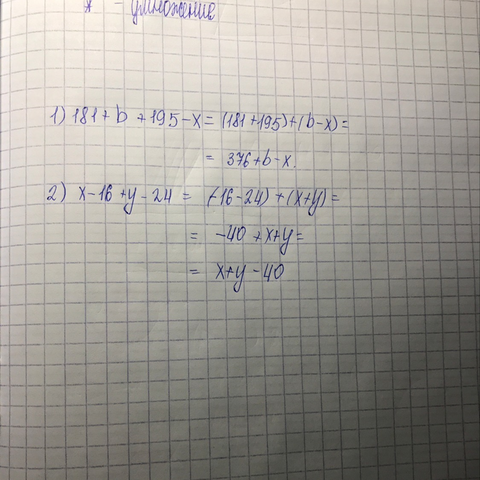 * - умножение
1) 181 + b + 195 - x = (181 + 195) + (b - x) =
= 376 + b - x.
2) x - 16 + y - 24 = (-16 - 24) + (x + y) =
= -40 + x + y =
= x + y - 40